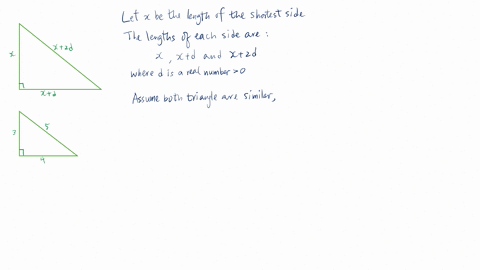 Let x be the length of the shortest side
The lengths of each side are :
x , x+d and x+2d
where d is a real number >0
Assume both triangle are similar,
x
x+2d
x+d
3
5
4